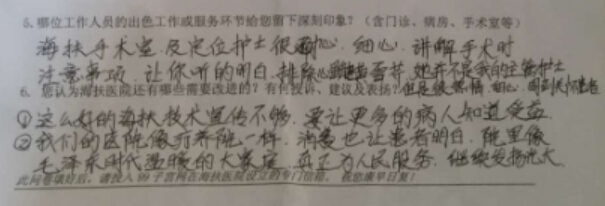 5.哪位工作人员的出色工作或服务环节给您留下深刻印象？（含门诊、病房、手术室等）
海扶手术室及定位护士很耐心、细心、讲解手术时
注意事项，让你听的明白，排除 她并不是我的主管护士
6. 您认为海扶医院还有哪些需要改进的？有何投诉、建议及表扬？但是很热情 细心
①这么好的海扶技术宣传不够，要让更多的病人知道受益
②我们的医院像疗养院一样，消费也让患者明白，院里像
毛泽东时代温暖的大家庭，真正为人民服务，继续发扬光大
此问卷填好后，请投入 子宫网在海扶医院设立的专门信箱， 祝您康早日复！